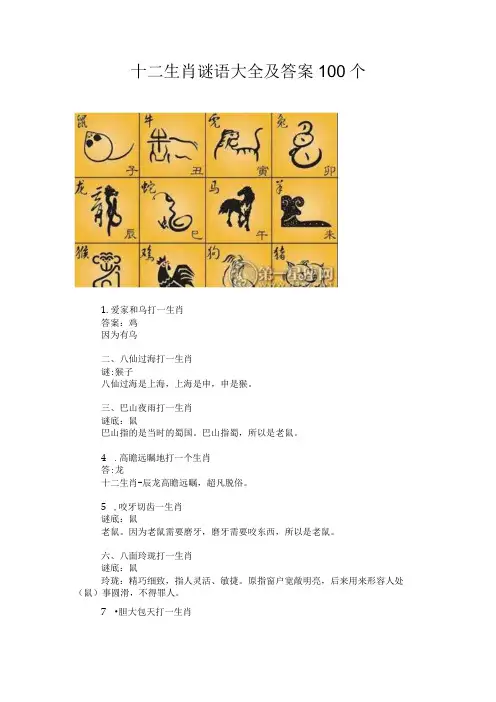 十二生肖谜语大全及答案100个
鼠 牛 虎 兔
子 丑 寅 卯
龙 蛇 马 羊
辰 巳 午 未
猴 鸡 狗 猪
1.爱家和乌打一生肖
答案：鸡
因为有乌
二、八仙过海打一生肖
谜:猴子
八仙过海是上海，上海是申，申是猴。
三、巴山夜雨打一生肖
谜底：鼠
巴山指的是当时的蜀国。巴山指蜀，所以是老鼠。
4 .高瞻远瞩地打一个生肖
答:龙
十二生肖-辰龙高瞻远瞩，超凡脱俗。
5 ,咬牙切齿一生肖
谜底：鼠
老鼠。因为老鼠需要磨牙，磨牙需要咬东西，所以是老鼠。
六、八面玲珑打一生肖
谜底：鼠
玲珑：精巧细致，指人灵活、敏捷。原指窗户宽敞明亮，后来用来形容人处
（鼠）事圆滑，不得罪人。
7 •胆大包天打一生肖